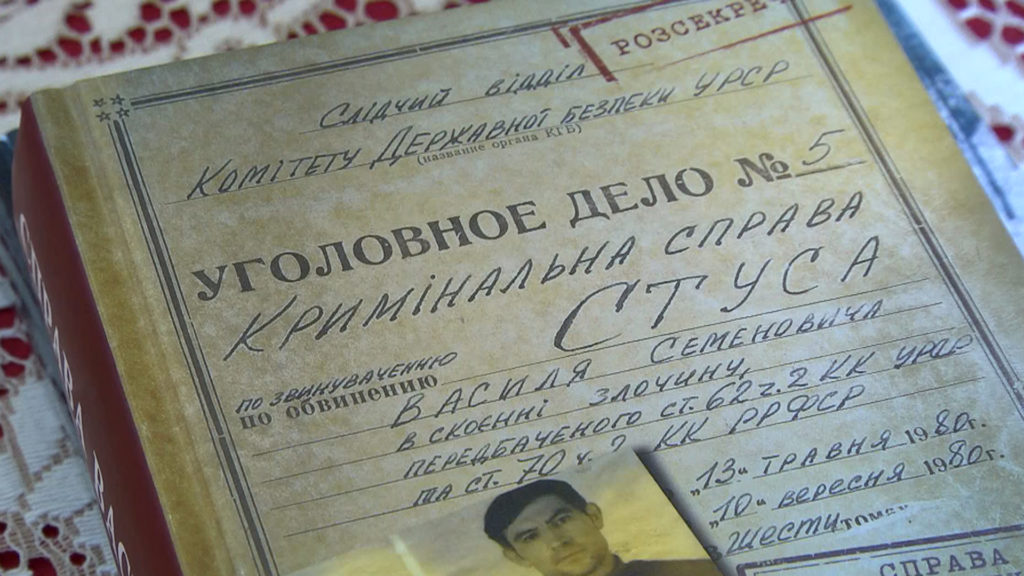 РОЗСЕКРЕ
Слідчий відділ
Комітету Державної безпеки УРСР
(название органа КГБ)
УГОЛОВНОЕ ДЕЛО № 5
Кримінальна справа
Стуса
по звинуваченню
по обвинению
Василя Семеновича
в скоєнні злочину,
передбаченого ст. 62 ч. 2 КК УРСР
та ст. 70 ч. 2 КК РРФСР
„13“ травня 1980г.
„10“ вересня 1980г.
в шести томах
СПРАВА
СПРАВА ВАС